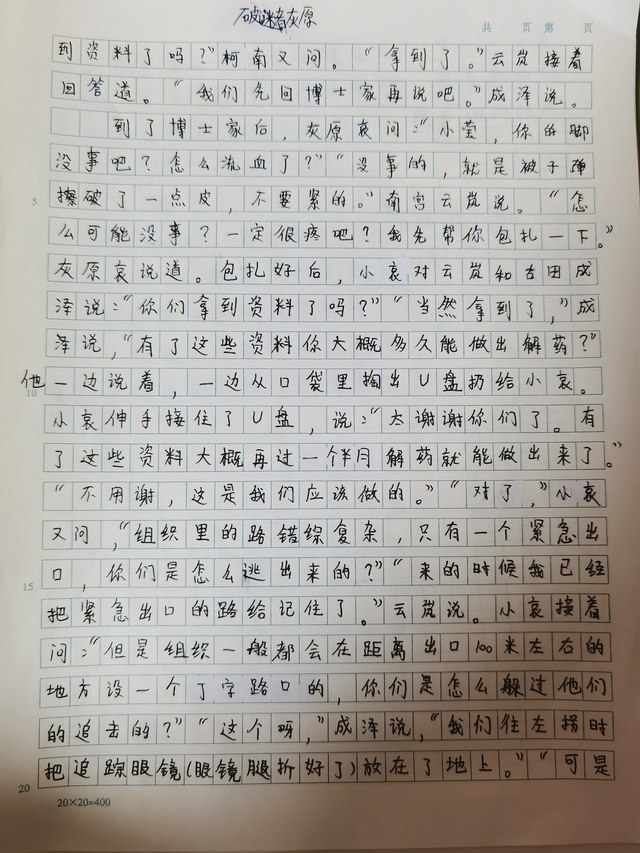 破迷者灰原
共 页 第 页
到资料了吗？”柯南又问。“拿到了。”云岚接着
回答道。“我们先回博士家再说吧。”成泽说。
到了博士家后，灰原哀问：“小莹，你的脚
没事吧？怎么流血了？”“没事的，就是被子弹
5 擦破了一点皮，不要紧的。”南宫云岚说。“怎
么可能没事？一定很疼吧？我先帮你包扎一下。”
灰原哀说道。包扎好后，小哀对云岚和古田成
泽说：“你们拿到资料了吗？”“当然拿到了，”成
泽说，“有了这些资料你大概多久能做出解药？”
10 他一边说着，一边从口袋里掏出U盘扔给小哀。
小哀伸手接住了U盘，说：“太谢谢你们了。有
了这些资料大概再过一个半月解药就能做出来了。”
“不用谢，这是我们应该做的。”“对了，”小哀
又问，“组织里的路错综复杂，只有一个紧急出
15 口，你们是怎么逃出来的？”“来的时候我已经
把紧急出口的路给记住了。”云岚说。小哀接着
问：“但是组织一般都会在距离出口100米左右的
地方设一个丁字路口的，你们是怎么躲过他们
的追击的？”“这个呀，”成泽说，“我们往左拐时
20 把追踪眼镜(眼镜腿折好了)放在了地上。”“可是
20×20=400